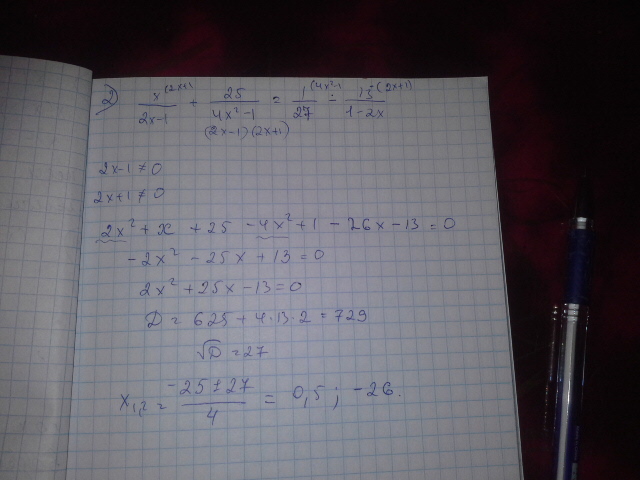 2) x^(2x+1) / 2x-1 + 25 / 4x²-1 = 1^(4x²-1 / 27 - 13^-(2x+1) / 1-2x
(2x-1)(2x+1)
2x-1 ≠ 0
2x+1 ≠ 0
2x² + x + 25 - 4x² + 1 - 26x - 13 = 0
-2x² - 25x + 13 = 0
2x² + 25x - 13 = 0
D = 625 + 4·13·2 = 729
√D = 27
x₁,₂ = -25±27 / 4 = 0,5 ; -26.